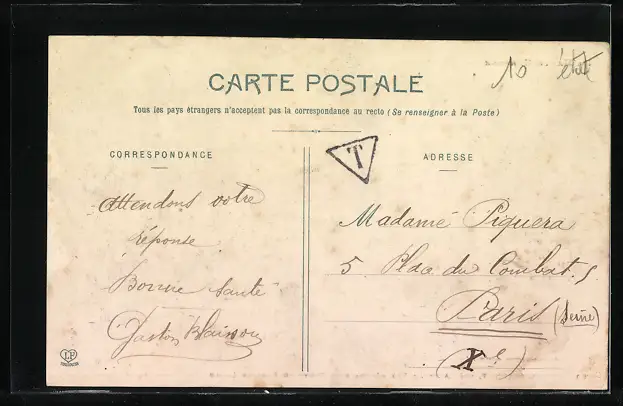 10 état
CARTE POSTALE
Tous les pays étrangers n'acceptent pas la correspondance au recto (Se renseigner à la Poste)
T
CORRESPONDANCE
Attendons votre
réponse
Bonne santé
Gaston
ADRESSE
Madame Piquera
5 Place du Combat 5
Paris (Seine)
(Xe)
LP